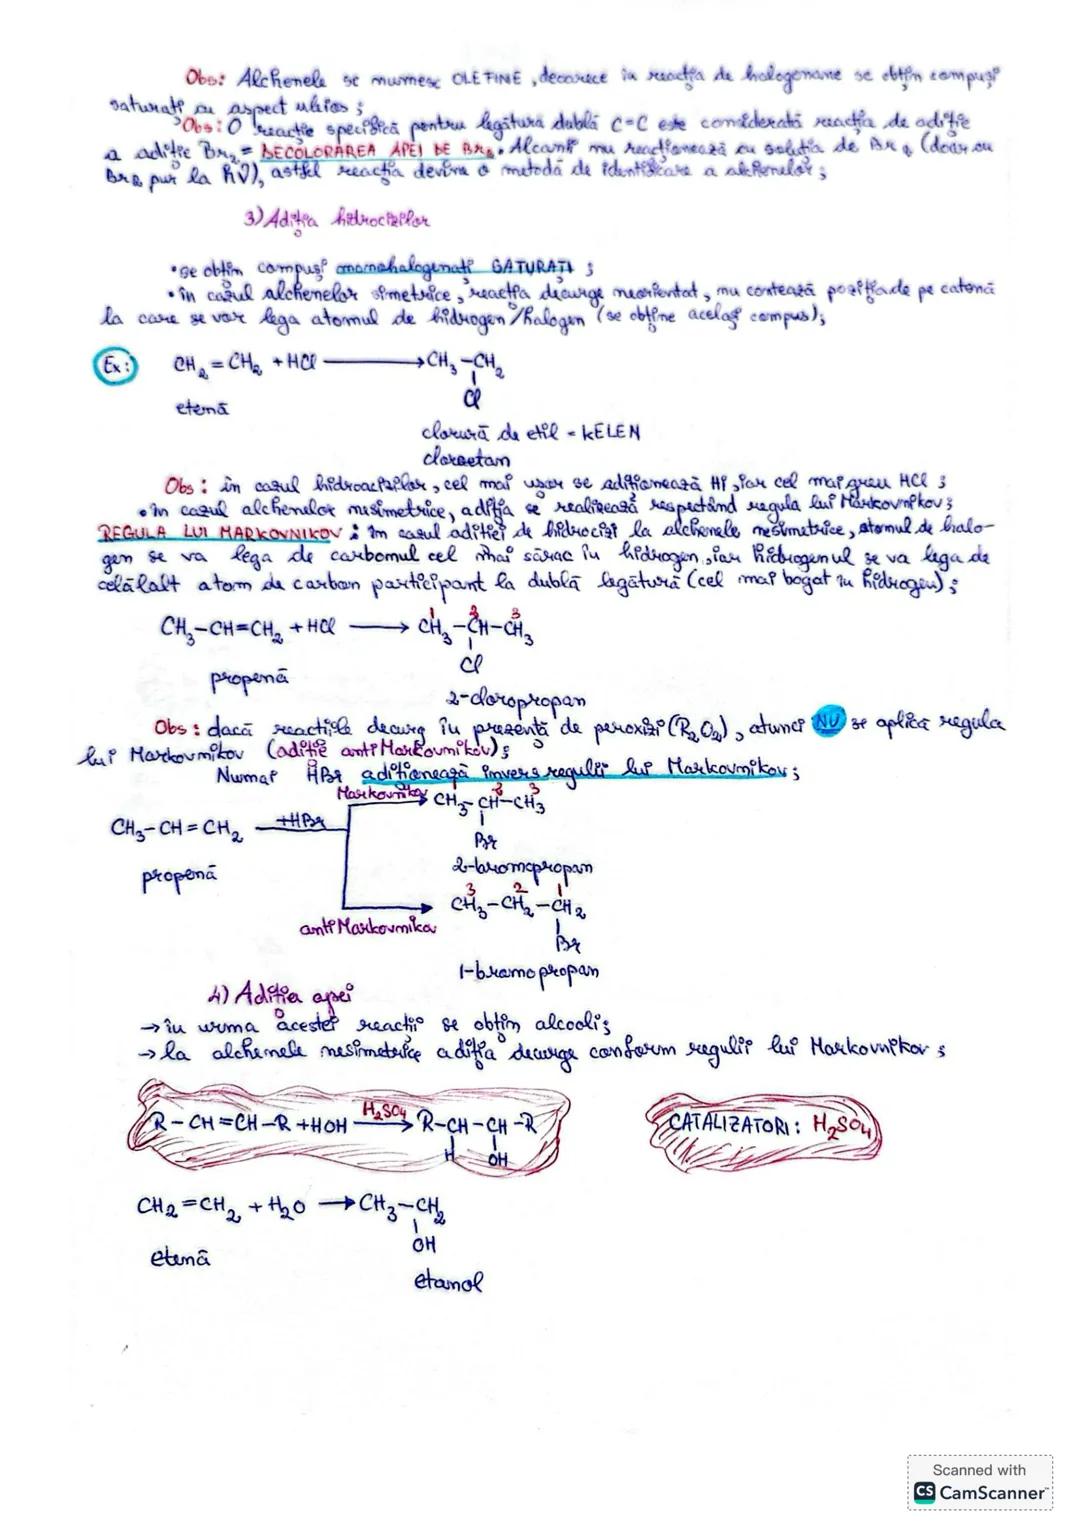 Obs: Alchenele se numesc OLEFINE, deoarece în reacția de halogenare se obțin compuși
saturați cu aspect uleios;
Obs: O reacție specifică pentru legătura dublă C=C este considerată reacția de adiție
a aditie Br₂ = DECOLORAREA APEI DE Br₂. Alcanii nu reacționează cu soluția de Br₂ (doar cu
Br₂ pur la hν), astfel reacția devine o metodă de identificare a alchenelor;
3) Adiția hidrocizilor
• se obțin compuși monohalogenați SATURAȚI;
• în cazul alchenelor simetrice, reacția decurge neorientat, nu contează poziția de pe catenă
la care se vor lega atomul de hidrogen/halogen (se obține același compus);
Ex: CH₂=CH₂ + HCl → CH₃-CH₂
Cl
etenă
clorură de etil = KELEN
cloroetan
Obs: în cazul hidroacizilor, cel mai ușor se adiționează HI, iar cel mai greu HCl;
• în cazul alchenelor nesimetrice, adiția se realizează respectând regula lui Markovnikov;
REGULA LUI MARKOVNIKOV: în cazul adiției de hidrocizi la alchenele nesimetrice, atomul de halo-
gen se va lega de carbonul cel mai sărac în hidrogen, iar hidrogenul se va lega de
celălalt atom de carbon participant la dublă legătură (cel mai bogat în hidrogen);
1 2 3
CH₃-CH=CH₂ + HCl → CH₃-CH-CH₃
Cl
propenă
2-cloropropan
Obs: dacă reacțiile decurg în prezență de peroxizi (R₂O₂), atunci NU se aplică regula
lui Markovnikov (adiție antiMarkovnikov);
Numai HBr adiționează invers regulii lui Markovnikov;
1 2 3
Markovnikov CH₃-CH-CH₃
CH₃-CH=CH₂ +HBr
Br
propenă
2-bromopropan
3 2 1
CH₃-CH₂-CH₂
antiMarkovnikov
Br
1-bromopropan
4) Adiția apei
→ în urma acestei reacții se obțin alcooli;
→ la alchenele nesimetrice adiția decurge conform regulii lui Markovnikov;
R-CH=CH-R + HOH H₂SO₄→ R-CH-CH-R
H OH
CATALIZATORI: H₂SO₄
CH₂=CH₂ + H₂O → CH₃-CH₂
OH
etenă
etanol
Scanned with
CS CamScanner